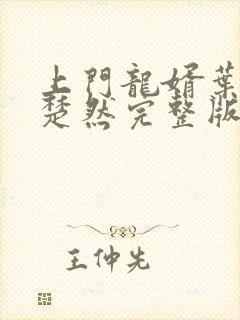 上門龍婿葉
楚然完整版
王仲先